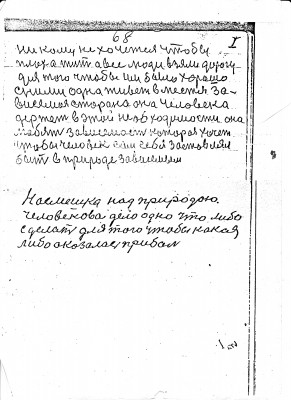 68
I
никому не хочется чтобы
плохо а все люди взяли дорогу
для того чтобы им было хорошо
с ними одна живет вмеется за-
висемая сторона она человека
держет в этой необходимости она
любят зависемост которая хочет
чтобы человек сам себя заставлял
быт в природе зависемым
Насмешка над природою
человекова дело одно что либо
сделат для того чтобы какая
либо оказалас прибал